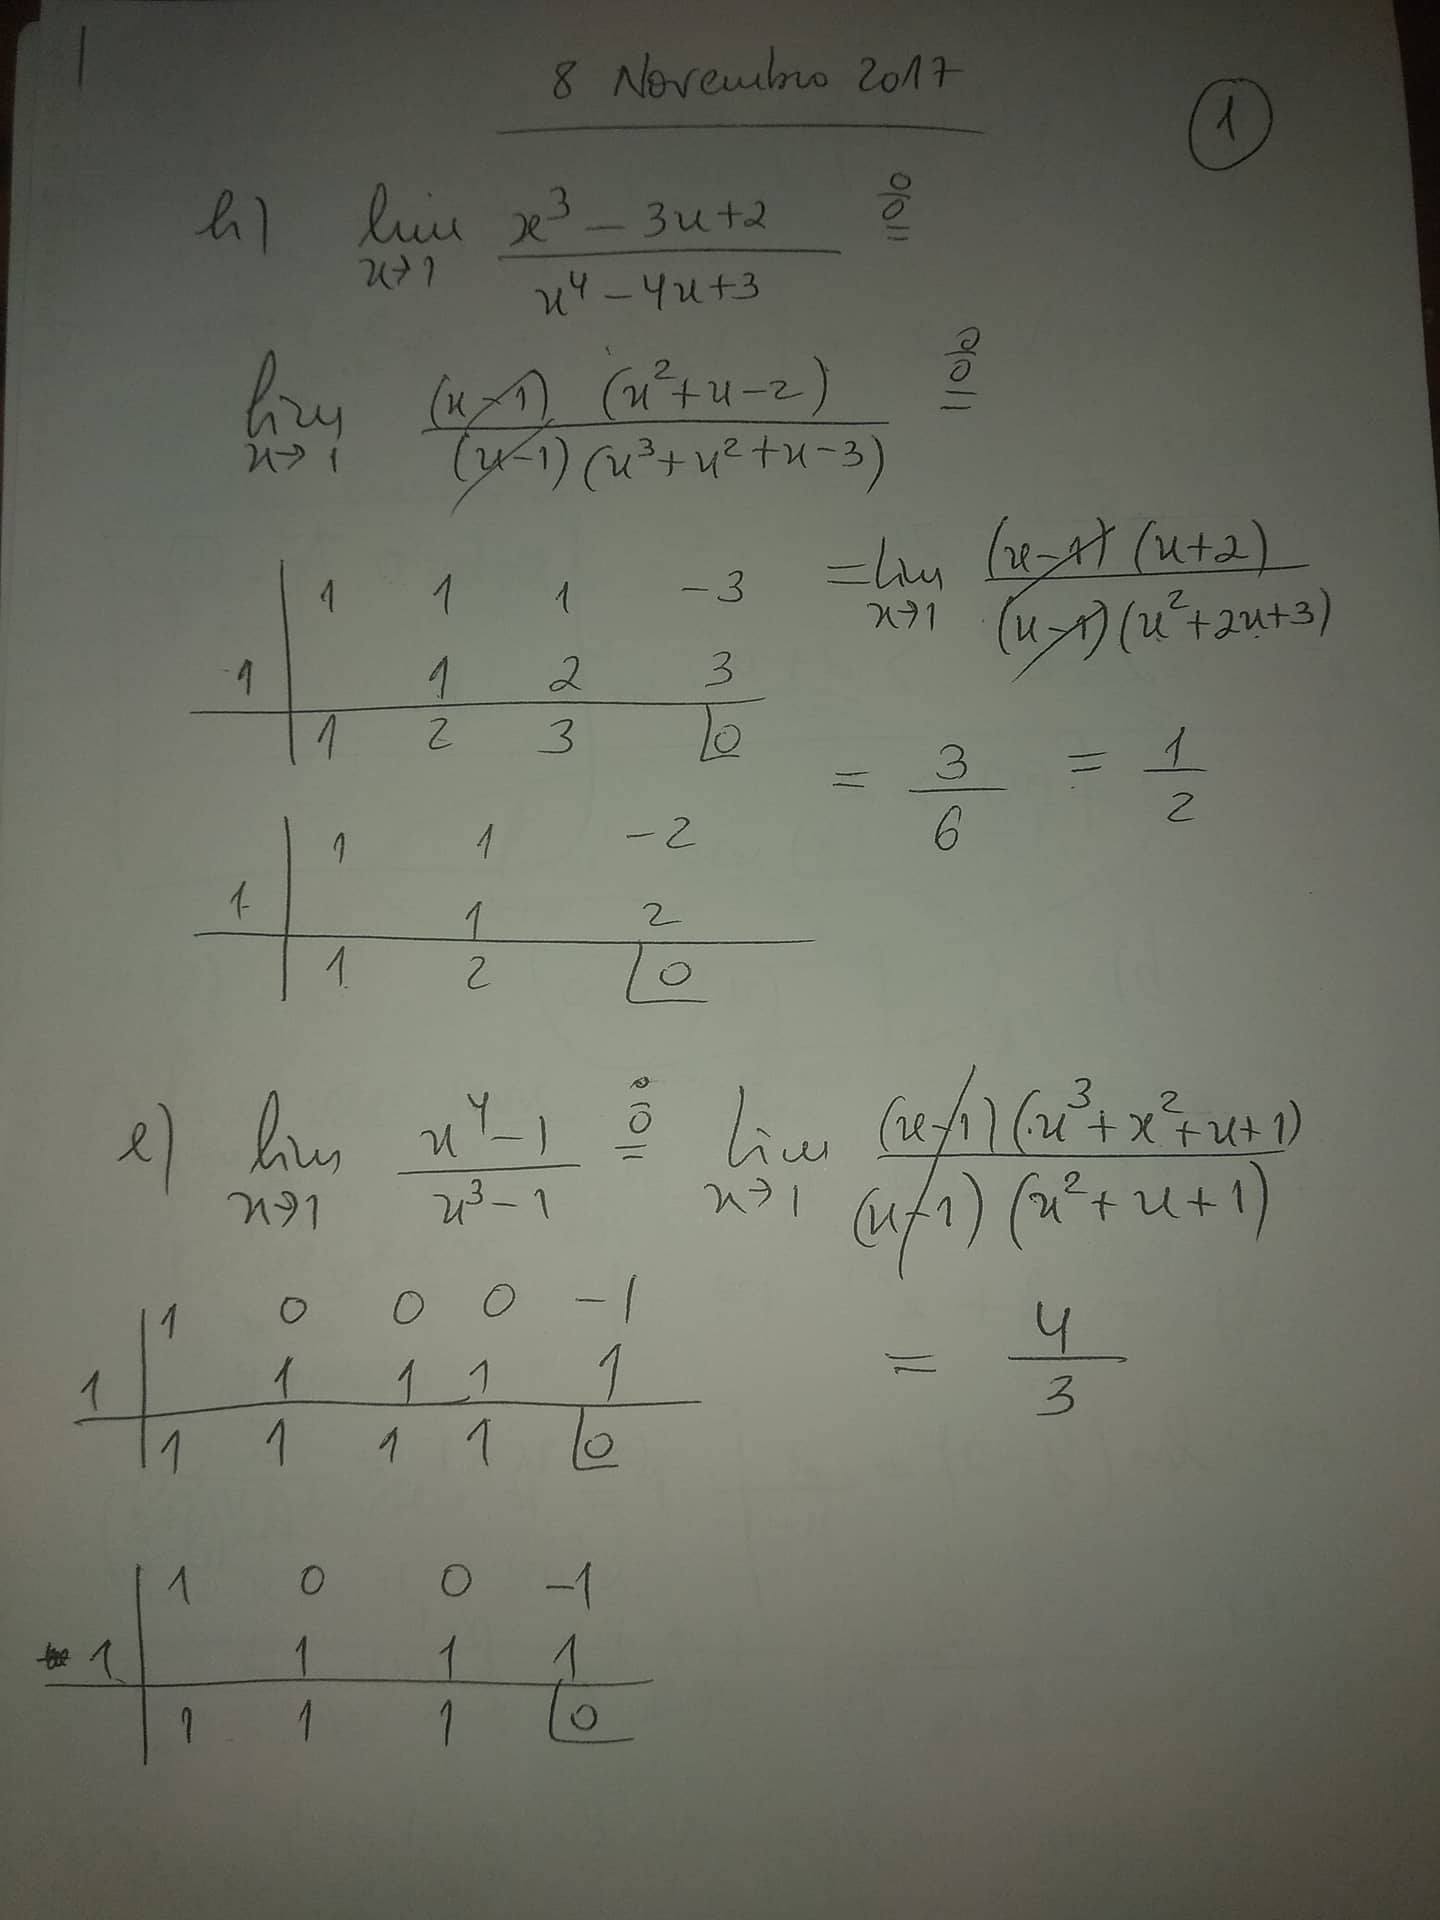 8 Novembro 2017
1
h) lim x→1 (x³ - 3x + 2)/(x⁴ - 4x + 3) 0/0 =
lim x→1 ((x-1) (x² + x - 2))/((x-1) (x³ + x² + x - 3)) 0/0 =
= lim x→1 ((x-1) (x+2))/((x-1) (x² + 2x + 3))
1 1 1 -3
1 1 2 3
1 2 3 0
= 3/6 = 1/2
1 1 -2
1 1 2
1 2 0
e) lim x→1 (x⁴ - 1)/(x³ - 1) 0/0 = lim x→1 ((x-1) (x³ + x² + x + 1))/((x-1) (x² + x + 1))
= 4/3
1 0 0 0 -1
1 1 1 1 1
1 1 1 1 0
1 0 0 -1
1 1 1 1
1 1 1 0